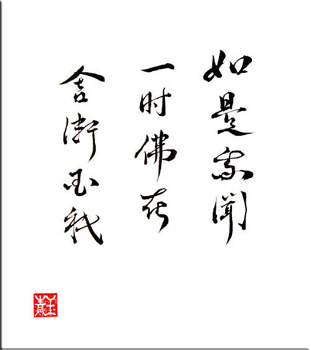 如是我聞
一时佛在
舍衛国祇